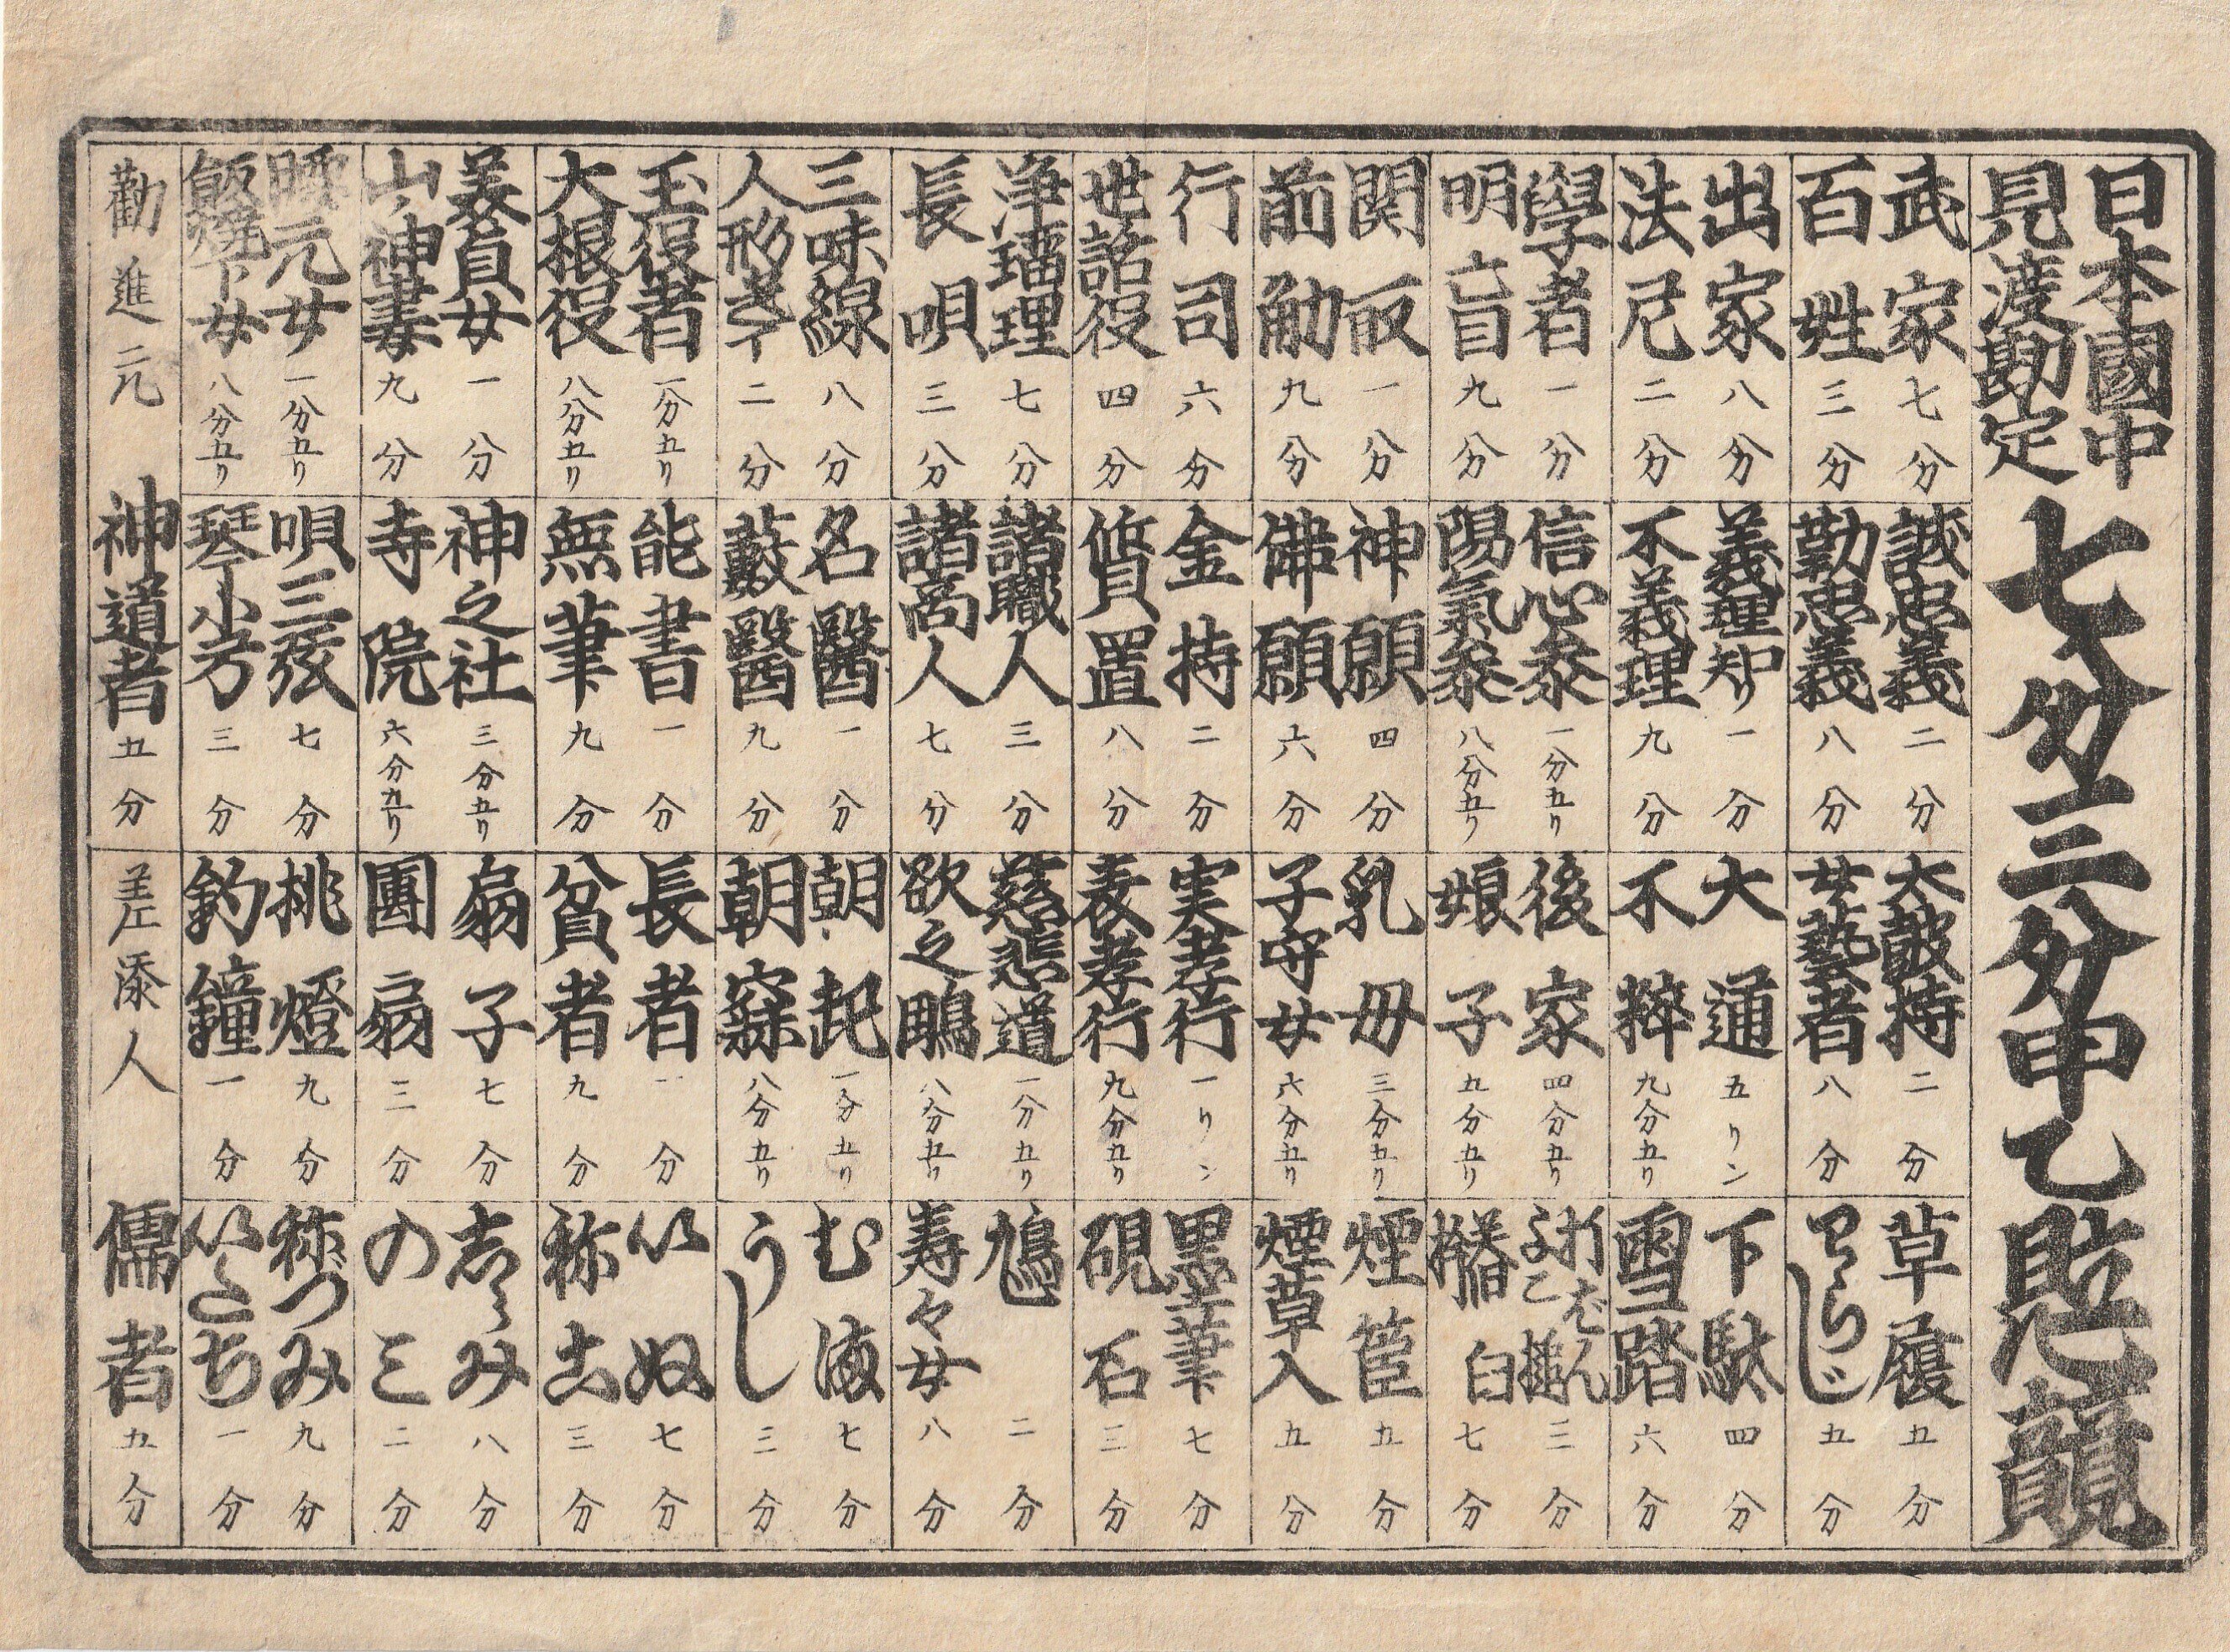 日本國中
見渡勘定
七分三分甲乙貼競
武家 七分
百姓 三分
出家 八分
法尼 二分
學者 一分
明盲 九分
関取 一分
前角力 九分
行司 六分
世話役 四分
浄瑠理 七分
長唄 三分
三味線 八分
人形 二分
玉役者 一分五リ
大根役 八分五リ
美貞女 一分
山ノ神妻 九分
元女 一分五リ
飯焼下女 八分五リ
誠忠義 二分
勤忠義 八分
義理知リ 一分
不義理 九分
信心参 一分五リ
陽氣参 八分五リ
神願 四分
佛願 六分
金持 二分
質置 八分
諸職人 三分
諸商人 七分
名醫 一分
薮醫 九分
能書 一分
無筆 九分
神之社 三分五リ
寺院 六分五リ
唄三弦 七分
琴小弓 三分
太皷持 二分
女藝者 八分
大通 五リン
不粋 九分五リ
後家 四分五リ
娘子 五分五リ
乳母 三分五リ
子守女 六分五リ
実孝行 一リン
表孝行 九分五リ
慈悲道 一分五リ
欲之鵰 八分五リ
朝起 一分五リ
朝寐 八分五リ
長者 一分
貧者 九分
扇子 七分
團扇 三分
挑燈 九分
釣鐘 一分
草履 五分
わらじ 五分
下駄 四分
雪踏 六分
摺 三分
臼 七分
煙管 五分
煙草入 五分
墨筆 七分
硯石 三分
鳩 二分
寿々女 八分
むま 七分
うし 三分
いぬ 七分
称こ 三分
志らみ 八分
のミ 二分
称づみ 九分
いたち 一分
勧進元 神道者 五分
差添人 儒者 五分